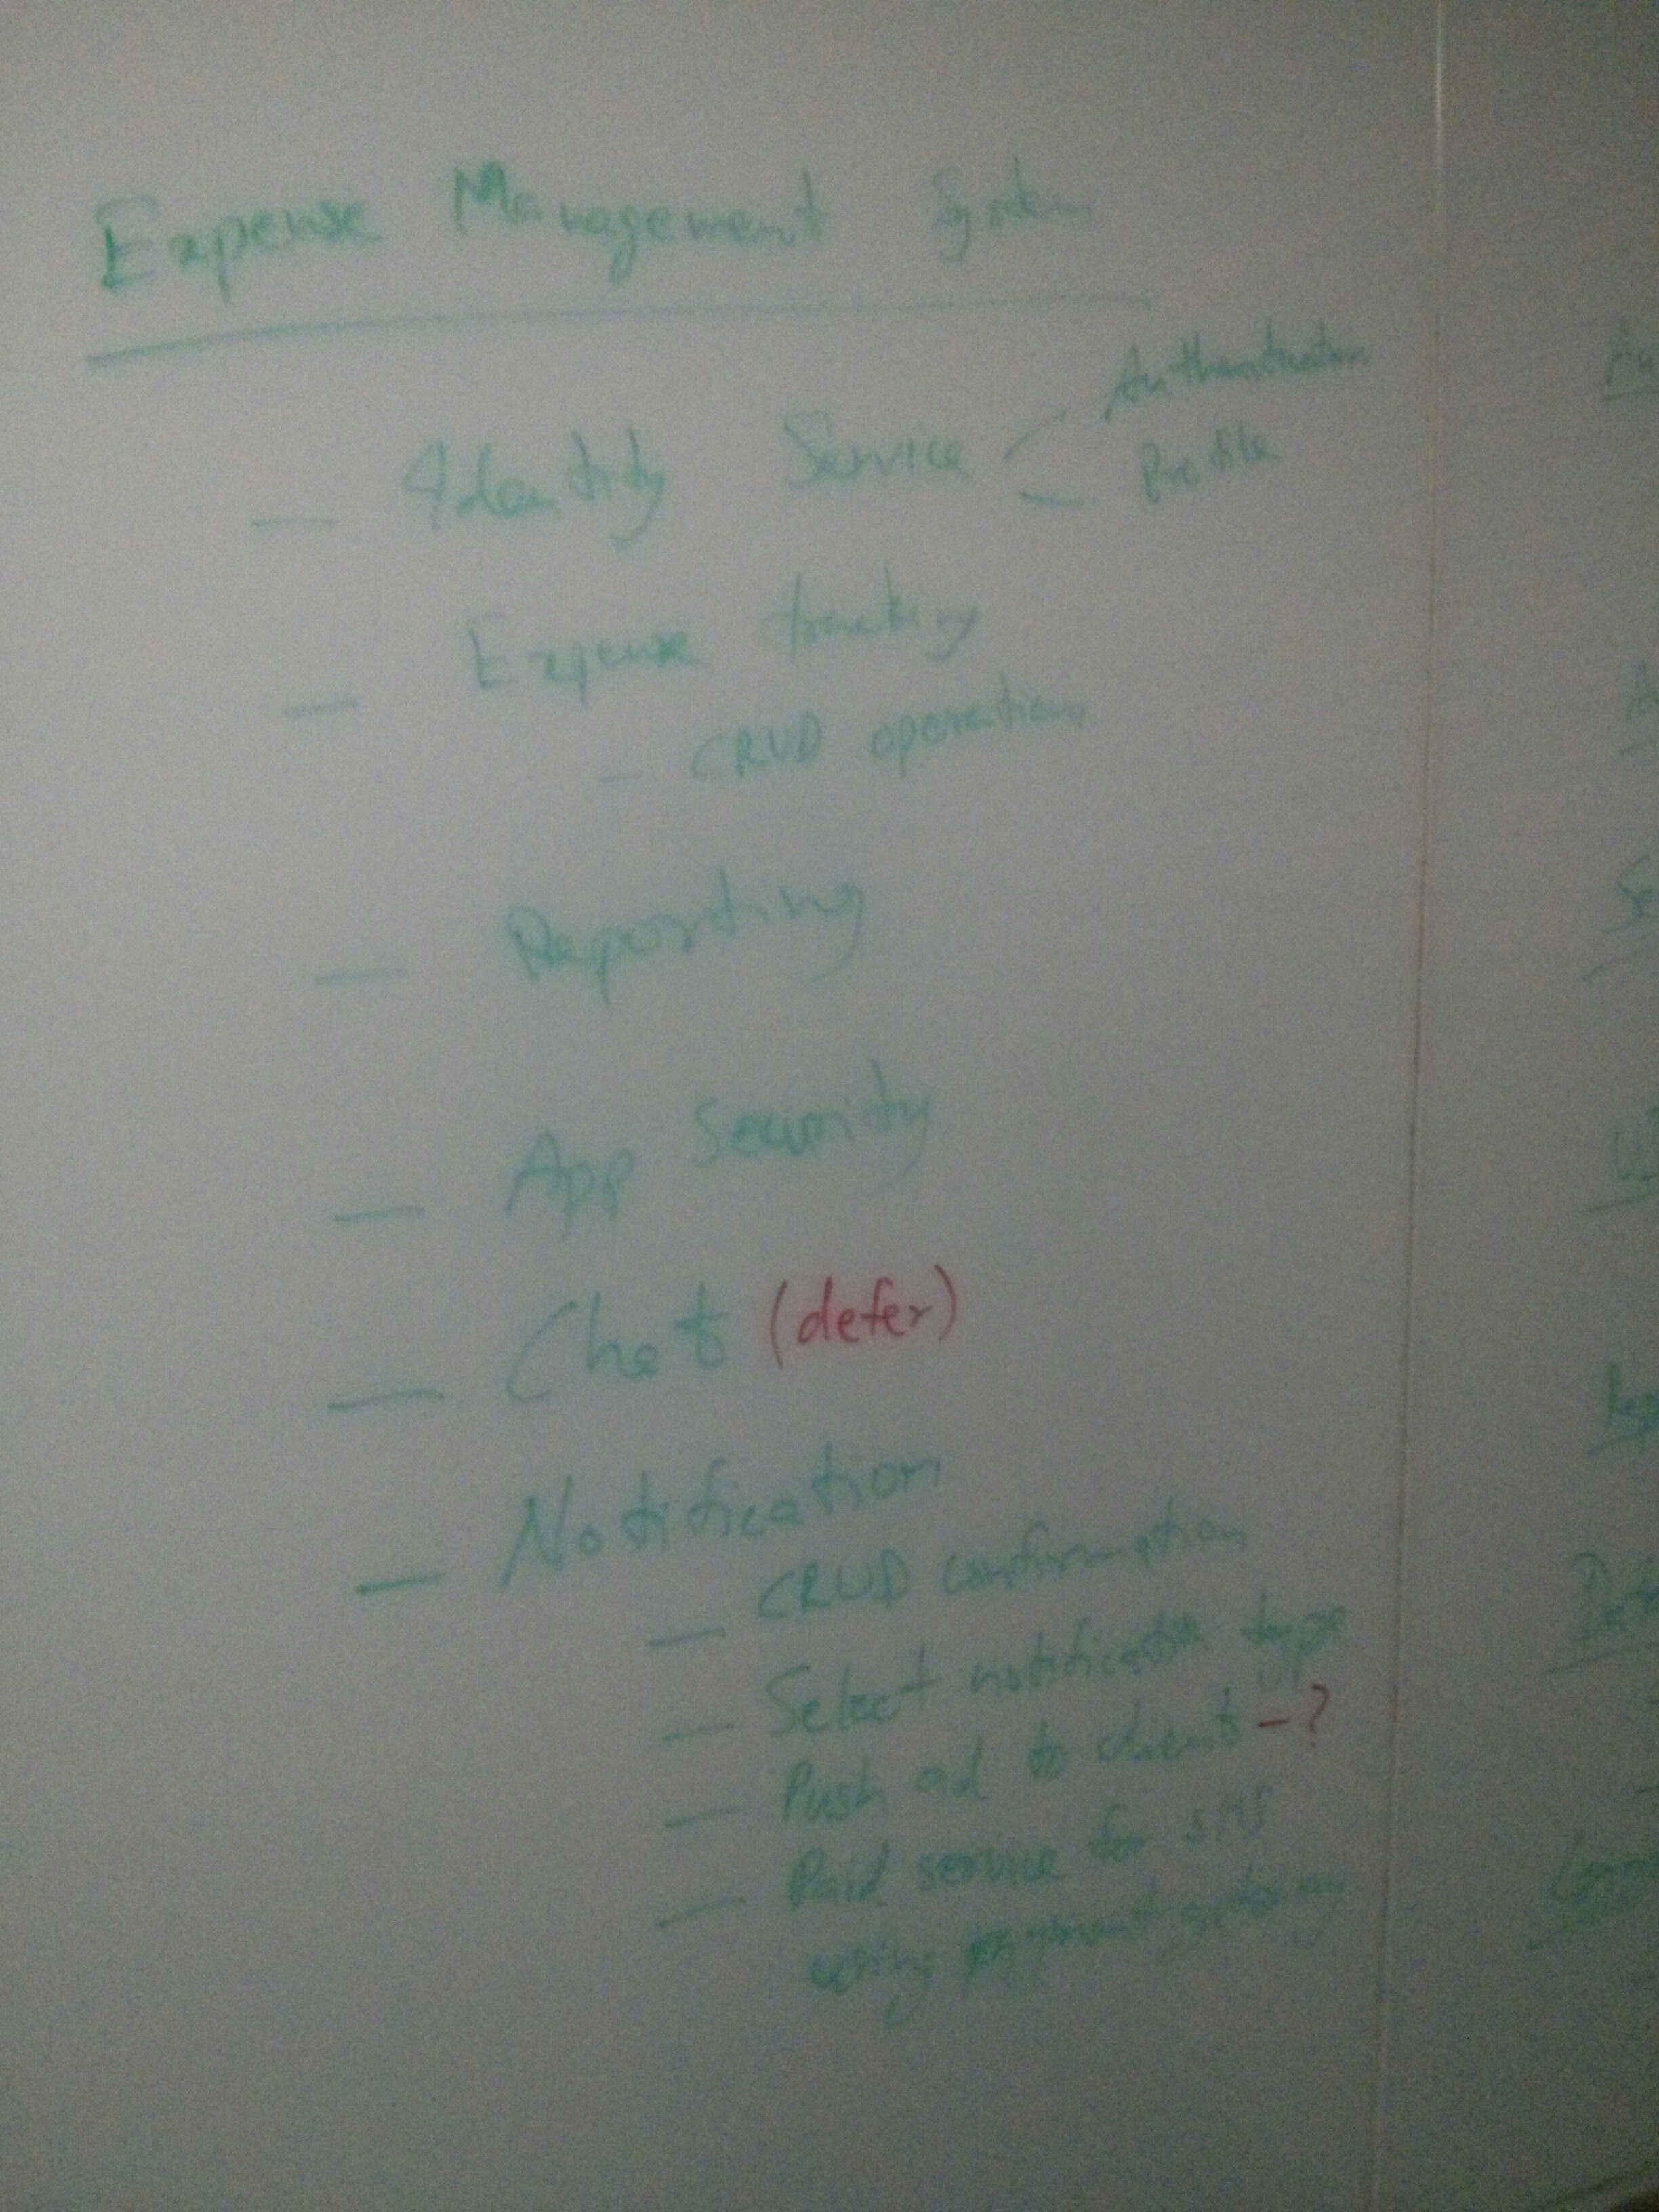 Expense Management System
— Identity Service — Authentication
— Profile
— Expense tracking
- CRUD operations
— Reporting
— App Security
— Chat (defer)
— Notification
— CRUD confirmation
— Select notification type
— Push ad to clients - ?
— Paid service for SMS
using payment gateway